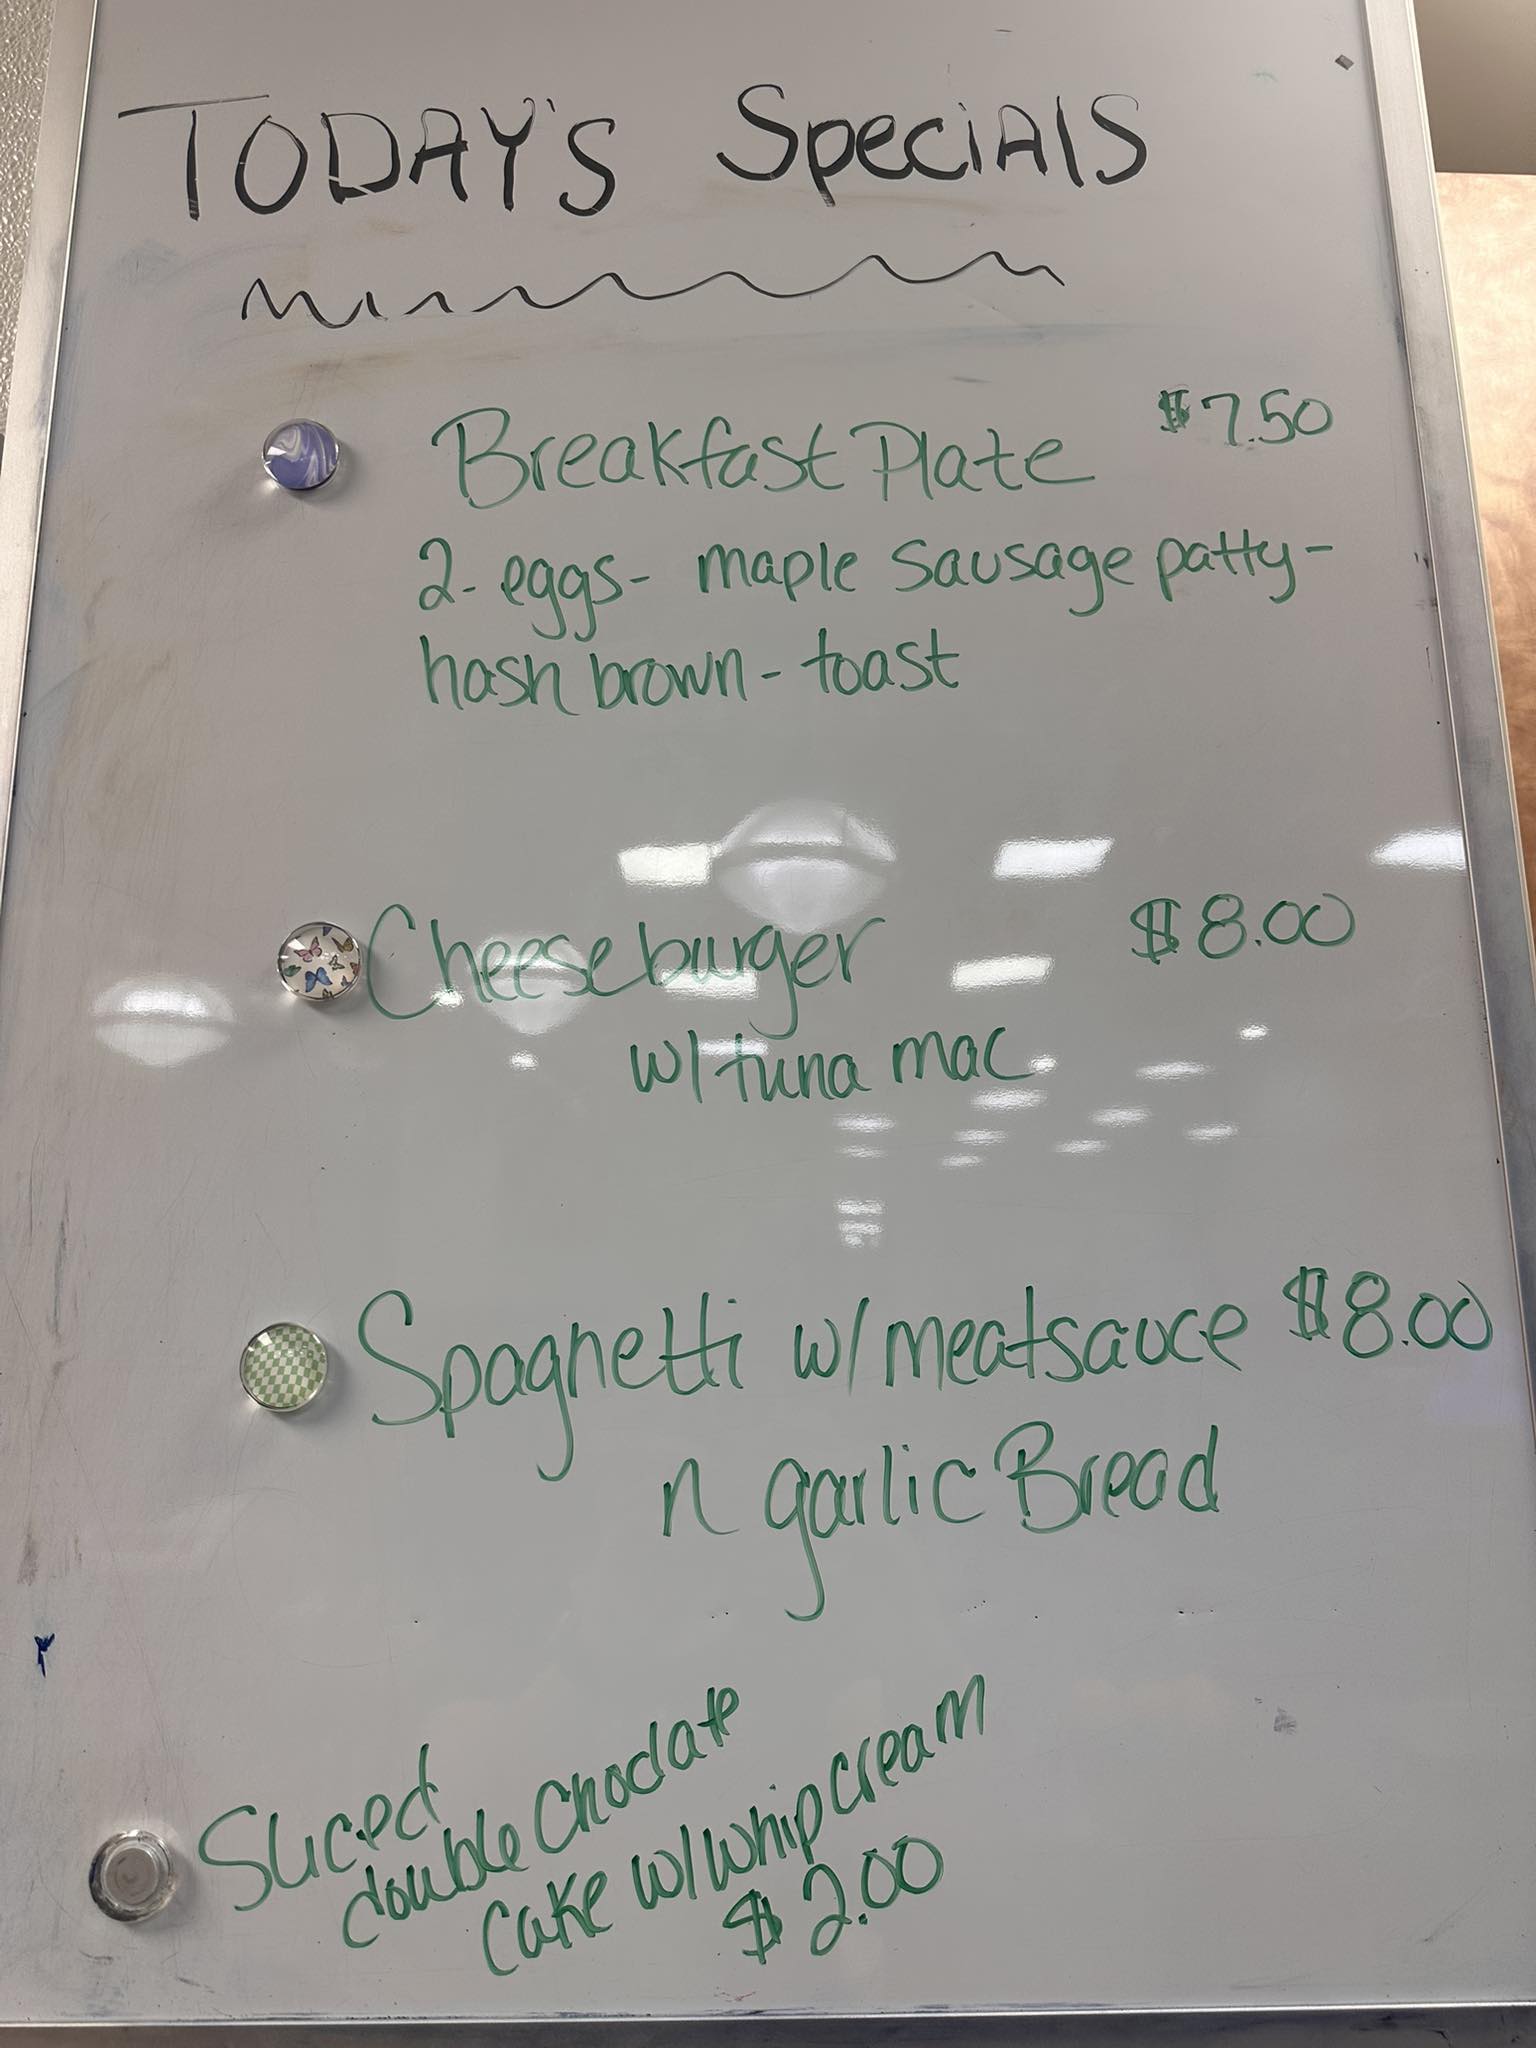 TODAY'S SpeciAlS
Breakfast Plate $7.50
2- eggs- maple Sausage patty-
hash brown - toast
Cheeseburger $8.00
w/ tuna mac
Spaghetti w/ meatsauce $8.00
n garlic Bread
Sliced
double Choclate
Cake w/ whip cream
$2.00